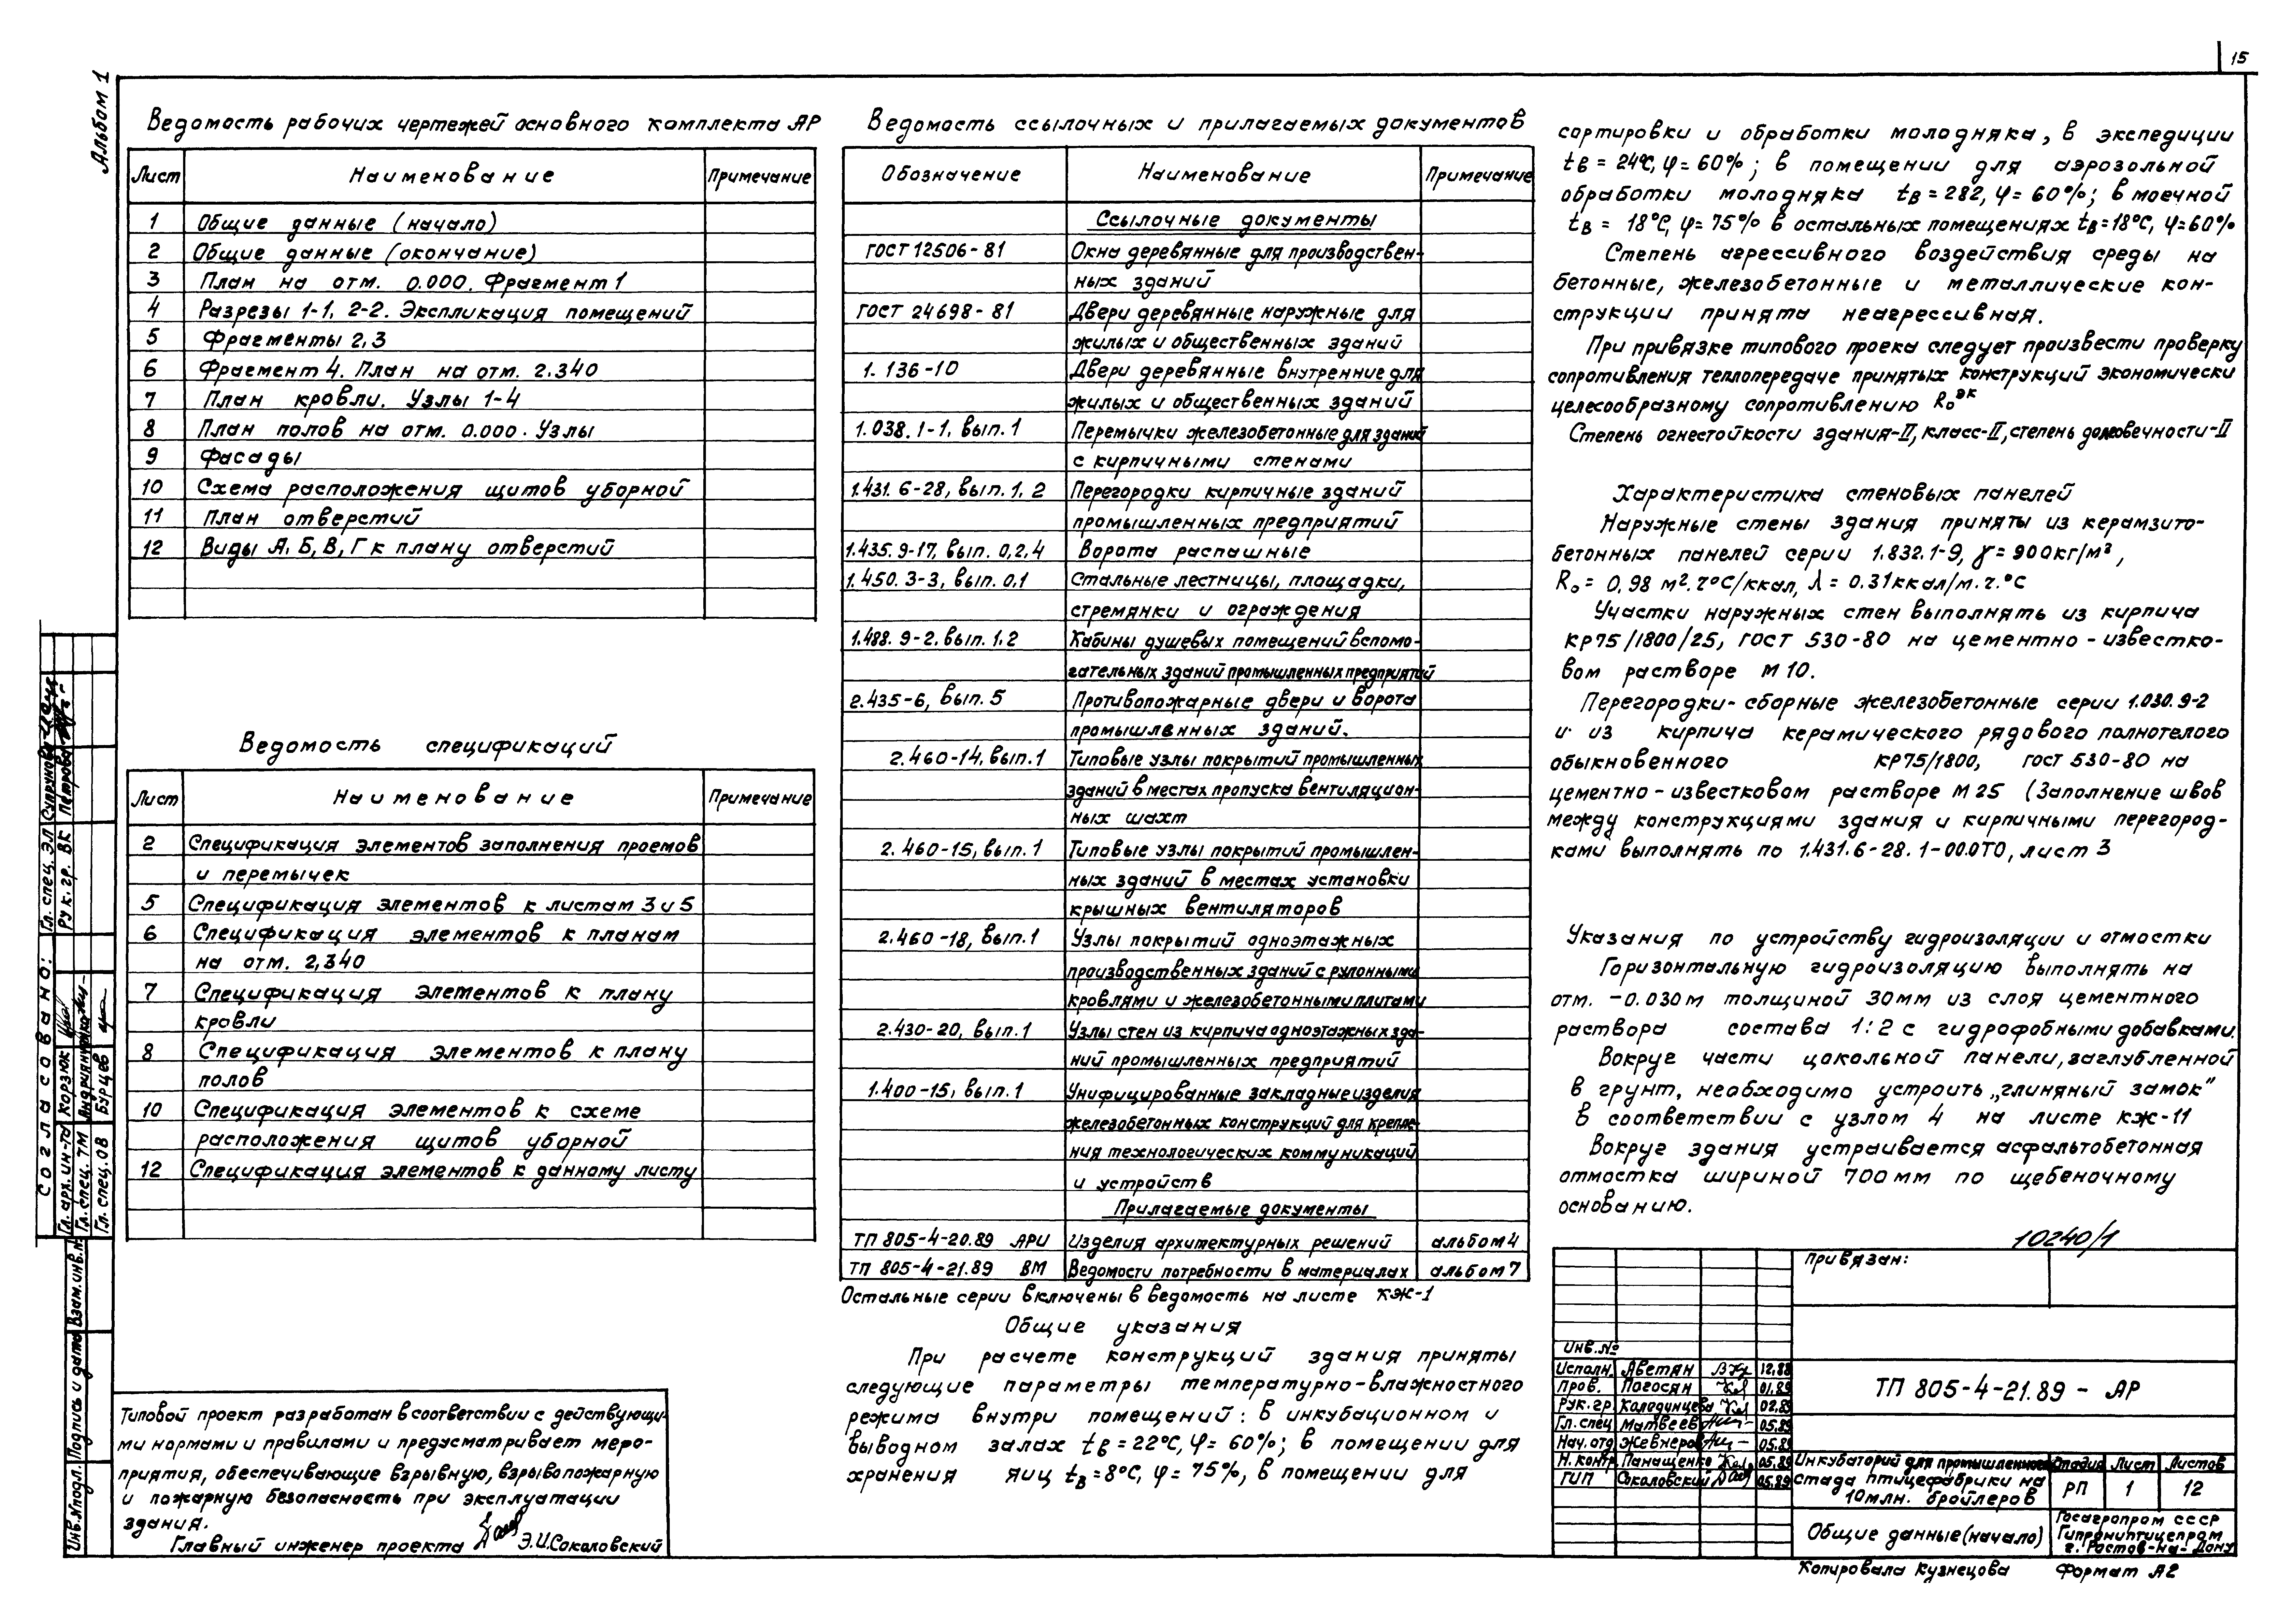 15
Альбом 1
Ведомость рабочих чертежей основного комплекта АР
Лист Наименование Примечание
1 Общие данные (начало)
2 Общие данные (окончание)
3 План на отм. 0.000. Фрагмент 1
4 Разрезы 1-1, 2-2. Экспликация помещений
5 Фрагменты 2,3
6 Фрагмент 4. План на отм. 2.340
7 План кровли. Узлы 1-4
8 План полов на отм. 0.000. Узлы
9 Фасады
10 Схема расположения щитов уборной
11 План отверстий
12 Виды А, Б, В, Г к плану отверстий
Ведомость спецификаций
Лист Наименование Примечание
2 Спецификация элементов заполнения проемов
и перемычек
5 Спецификация элементов к листам 3 и 5
6 Спецификация элементов к планам
на отм. 2,340
7 Спецификация элементов к плану
кровли
8 Спецификация элементов к плану
полов
10 Спецификация элементов к схеме
расположения щитов уборной
12 Спецификация элементов к данному листу
Типовой проект разработан в соответствии с действующи-
ми нормами и правилами и предусматривает меро-
приятия, обеспечивающие взрывную, взрывопожарную
и пожарную безопасность при эксплуатации
здания.
Главный инженер проекта Э.И.Соколовский
Ведомость ссылочных и прилагаемых документов
Обозначение Наименование Примечание
Ссылочные документы
ГОСТ 12506-81 Окна деревянные для производствен-
ных зданий
ГОСТ 24698-81 Двери деревянные наружные для
жилых и общественных зданий
1.136-10 Двери деревянные внутренние для
жилых и общественных зданий
1.038.1-1, вып.1 Перемычки железобетонные для зданий
с кирпичными стенами
1.431.6-28, вып.1,2 Перегородки кирпичные зданий
промышленных предприятий
1.435.9-17, вып. 0,2,4 Ворота распашные
1.450.3-3, вып. 0,1 Стальные лестницы, площадки,
стремянки и ограждения
1.488.9-2. вып. 1.2 Кабины душевых помещений вспомо-
гательных зданий промышленных предприятий
2.435-6, вып. 5 Противопожарные двери и ворота
промышленных зданий.
2.460-14, вып.1 Типовые узлы покрытий промышленных
зданий в местах пропуска вентиляцион-
ных шахт
2.460-15, вып.1 Типовые узлы покрытий промышлен-
ных зданий в местах установки
крышных вентиляторов
2.460-18, вып.1 Узлы покрытий одноэтажных
производственных зданий с рулонными
кровлями и железобетонными плитами
2.430-20, вып.1 Узлы стен из кирпича одноэтажных зда-
ний промышленных предприятий
1.400-15, вып.1 Унифицированные закладные изделия
железобетонных конструкций для крепле-
ния технологических коммуникаций
и устройств
Прилагаемые документы
ТП 805-4-20.89 АРИ Изделия архитектурных решений альбом 4
ТП 805-4-21.89 ВМ Ведомости потребности в материалах альбом 7
Остальные серии включены в ведомость на листе КЖ-1
Общие указания
При расчете конструкций здания приняты
следующие параметры температурно-влажностного
режима внутри помещений: в инкубационном и
выводном залах tв=22°С, φ=60%; в помещении для
хранения яиц tв=8°С, φ=75%, в помещении для
сортировки и обработки молодняка, в экспедиции
tв=24°С, φ=60%; в помещении для аэрозольной
обработки молодняка tв=282, φ=60%; в моечной
tв= 18°С, φ=75% в остальных помещениях tв=18°С, φ=60%
Степень агрессивного воздействия среды на
бетонные, железобетонные и металлические кон-
струкции принята неагрессивная.
При привязке типового проека следует произвести проверку
сопротивления теплопередаче принятых конструкций экономически
целесообразному сопротивлению Rоэк
Степень огнестойкости здания-II, класс-II, степень долговечности-II
Характеристика стеновых панелей
Наружные стены здания приняты из керамзито-
бетонных панелей серии 1.832.1-9, γ=900кг/м²,
Rо=0,98 м².ч°С/ккал, λ=0.31ккал/м.ч.°С
Участки наружных стен выполнять из кирпича
КР75/1800/25, ГОСТ 530-80 на цементно-известко-
вом растворе М 10.
Перегородки-сборные железобетонные серии 1.030.9-2
и из кирпича керамического рядового полнотелого
обыкновенного КР75/1800, ГОСТ 530-80 на
цементно-известковом растворе М 25 (Заполнение швов
между конструкциями здания и кирпичными перегород-
ками выполнять по 1.431.6-28.1-00.0ТО, лист 3
Указания по устройству гидроизоляции и отмостки
Горизонтальную гидроизоляцию выполнять на
отм. -0.030м толщиной 30мм из слоя цементного
раствора состава 1:2 с гидрофобными добавками.
Вокруг части цокольной панели, заглубленной
в грунт, необходимо устроить „глиняный замок"
в соответствии с узлом 4 на листе КЖ-11
Вокруг здания устраивается асфальтобетонная
отмостка шириной 700мм по щебеночному
основанию.
10240/1
Привязан:
Инв.№
Исполн. Аветян 12.88
Пров. Погосян 01.89
Рук.гр. Калединцева 02.89
Гл.спец Матвеев 05.89
Нач.отд Жевнеров 05.89
Н.контр. Панащенко 05.89
ГИП Соколовский 05.89
ТП 805-4-21.89 - АР
Инкубаторий для промышленного
стада птицефабрики на
10млн. бройлеров
Стадия Лист Листов
РП 1 12
Общие данные (начало)
Госагропром СССР
Гипронптицепром
г. Ростов-на-Дону
Копировала Кузнецова Формат А2
Согласовано:
Гл. спец. ЭЛ Супрунова
Рук. гр. ВК Петрова
Гл. арх. ин-та Корзюк
Гл. спец. ТМ
Гл. спец. ОВ Бурцев
Инв.№подл. Подпись и дата Взам.инв.№